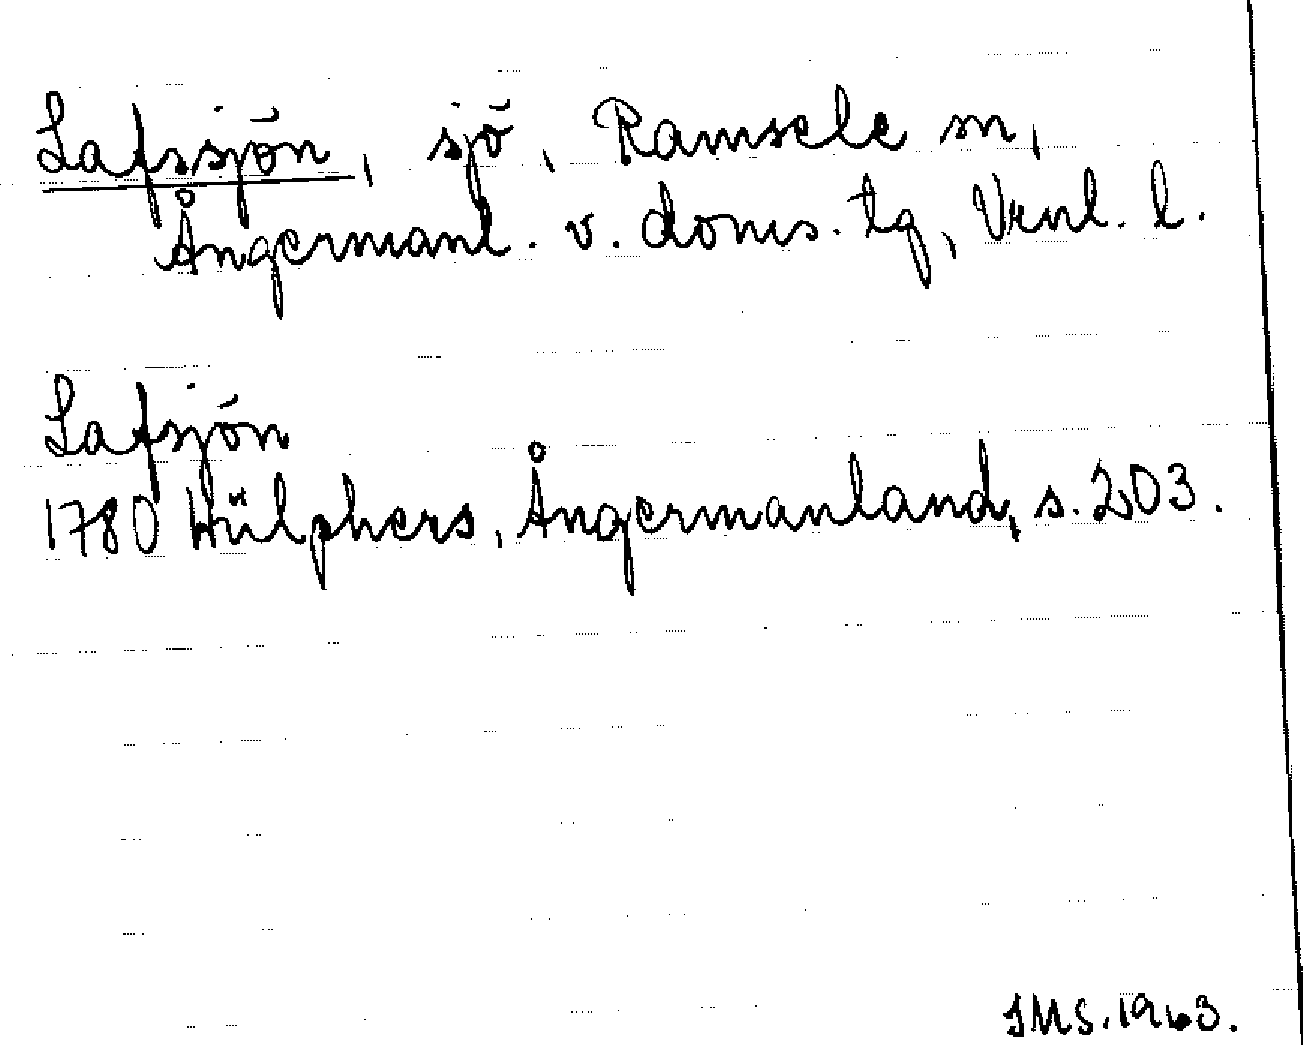 Lafssjön, sjö, Ramsele sn,
Ångermanl. v. doms. tg, Vrnl. l.
Lafsjön
1780 Hülphers, Ångermanland, s. 203.
IMS. 1963.